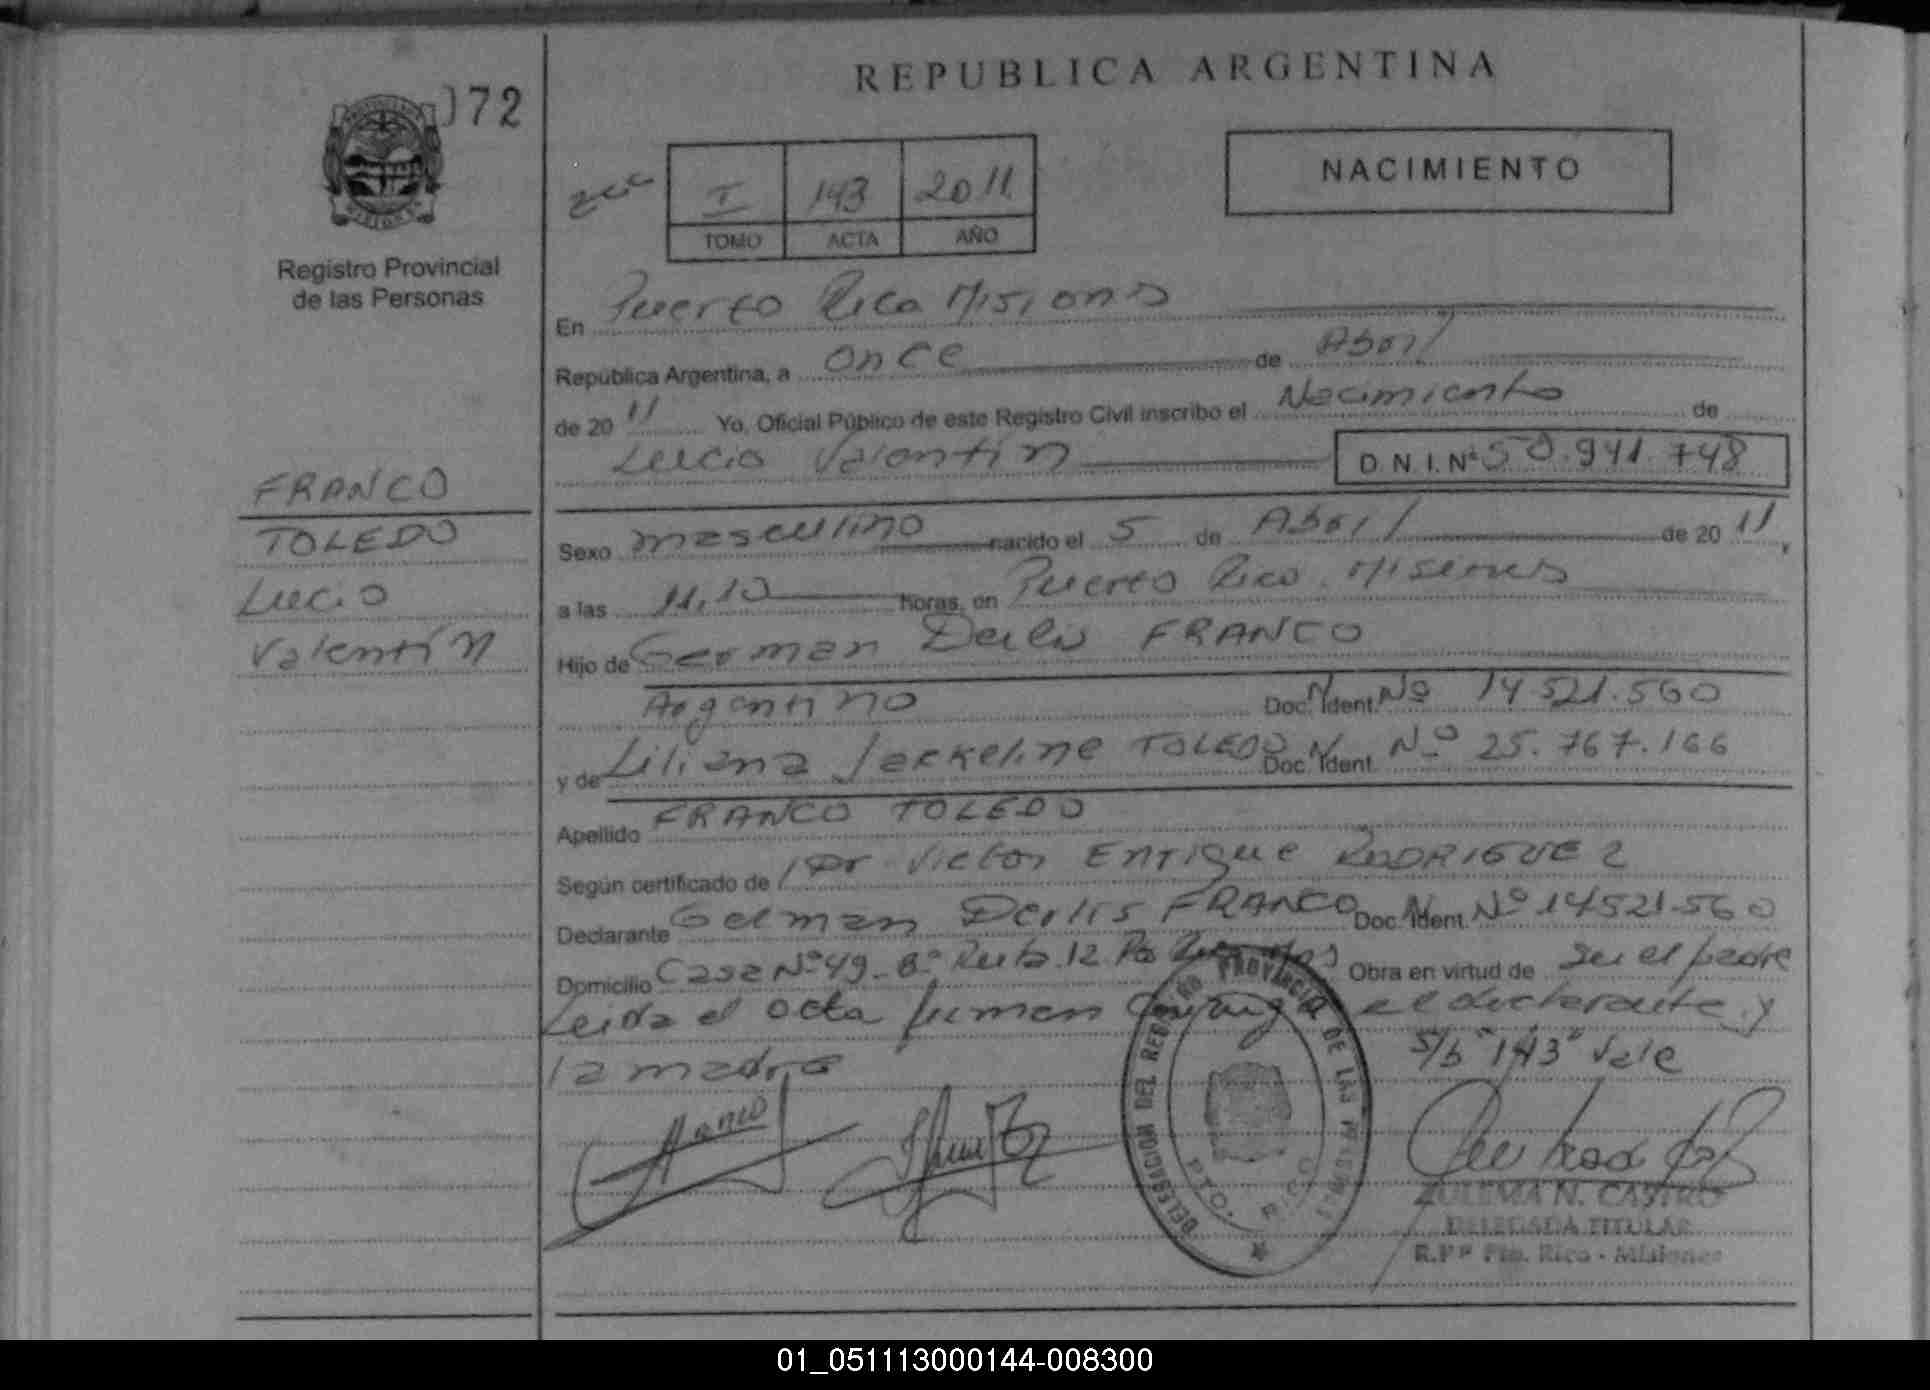 REPUBLICA ARGENTINA
072
NACIMIENTO
I 143 2011
TOMO ACTA AÑO
Registro Provincial
de las Personas
En Puerto Rico Misiones
República Argentina, a once de Abril
de 20 11 Yo, Oficial Público de este Registro Civil inscribo el Nacimiento de
Lucio Valentín D.N.I.Nº 50.941.748
FRANCO
TOLEDO
Lucio
Valentín
Sexo masculino nacido el 5 de Abril de 20 11,
a las 11,10 horas, en Puerto Rico Misiones
Hijo de German Derlis FRANCO
Argentino Doc. Ident. Nº 14 521.560
y de Liliana Jackeline TOLEDO Doc. Ident. Nº 25.767.166
Apellido FRANCO TOLEDO
Según certificado de Dr Victor Enrique RODRIGUEZ
Declarante German Derlis FRANCO Doc. Ident. Nº 14521.560
Domicilio Casa Nº 49 - Bº Ruta 12 Pto Rico Mns Obra en virtud de ser el padre
Leida el acta firman conmigo el declarante y
la madre S/b "143" Vale
Franco
DELEGACION DEL REGISTRO PROVINCIAL DE LAS PERSONAS
PTO. RICO
ZULEMA N. CASTRO
DELEGADA TITULAR
R.P.P Pto. Rico - Misiones
01_051113000144-008300